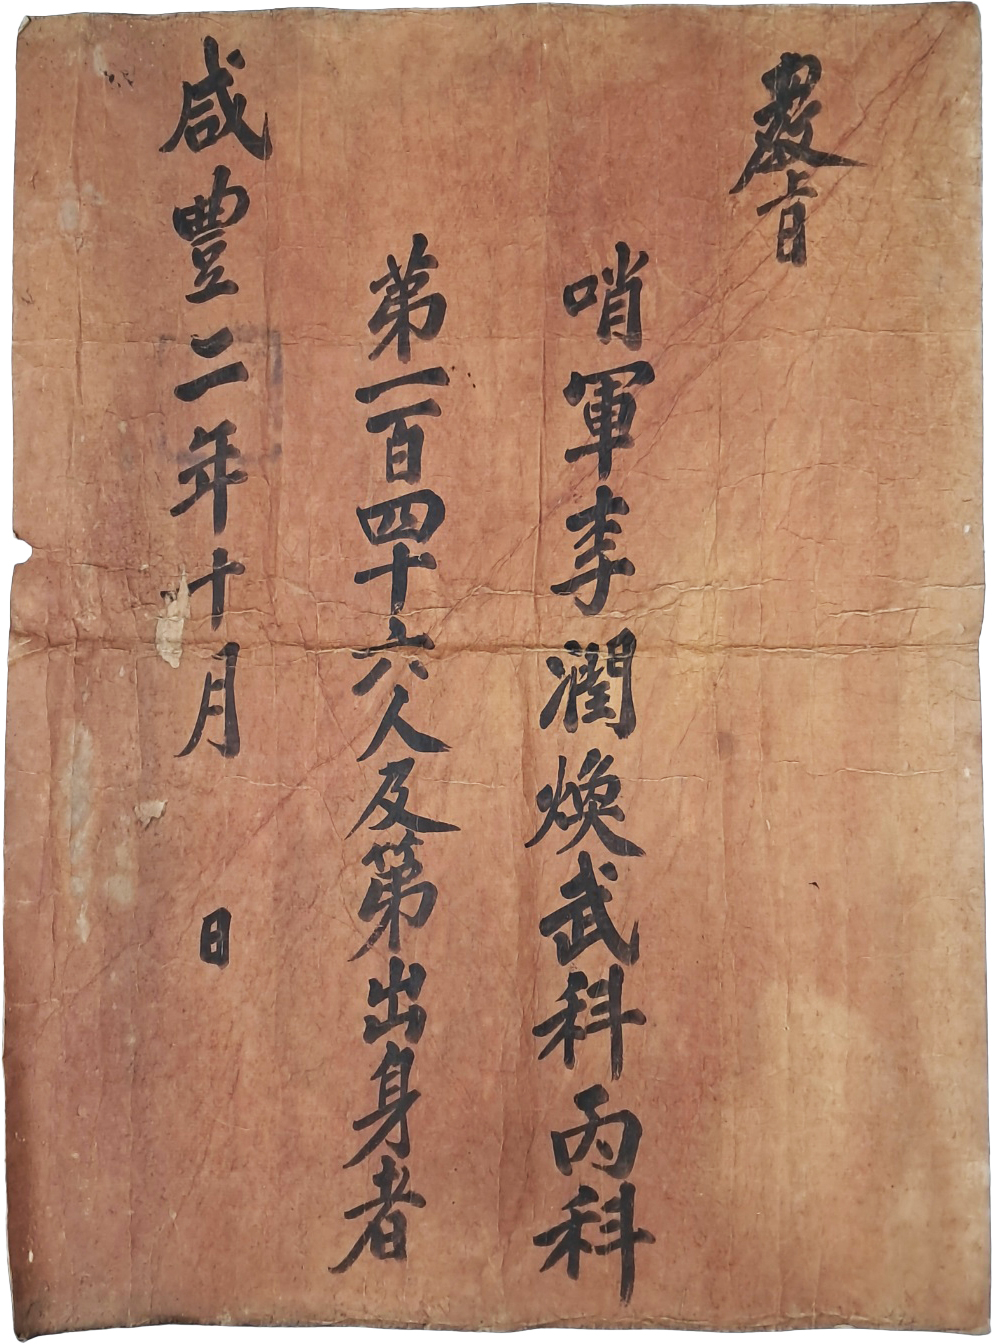 敎旨
哨軍李潤煥武科丙科
第一百四十六人及第出身者
咸豐二年十月 日